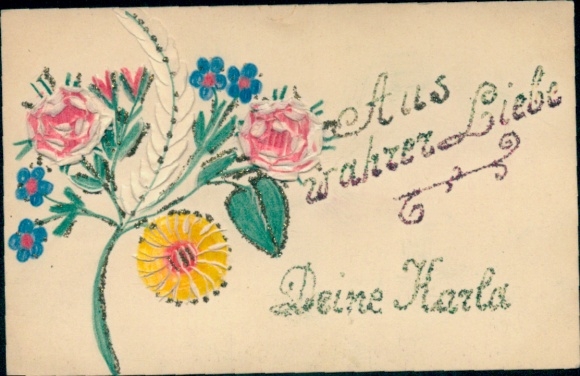 Aus
wahrer Liebe
Deine Karla